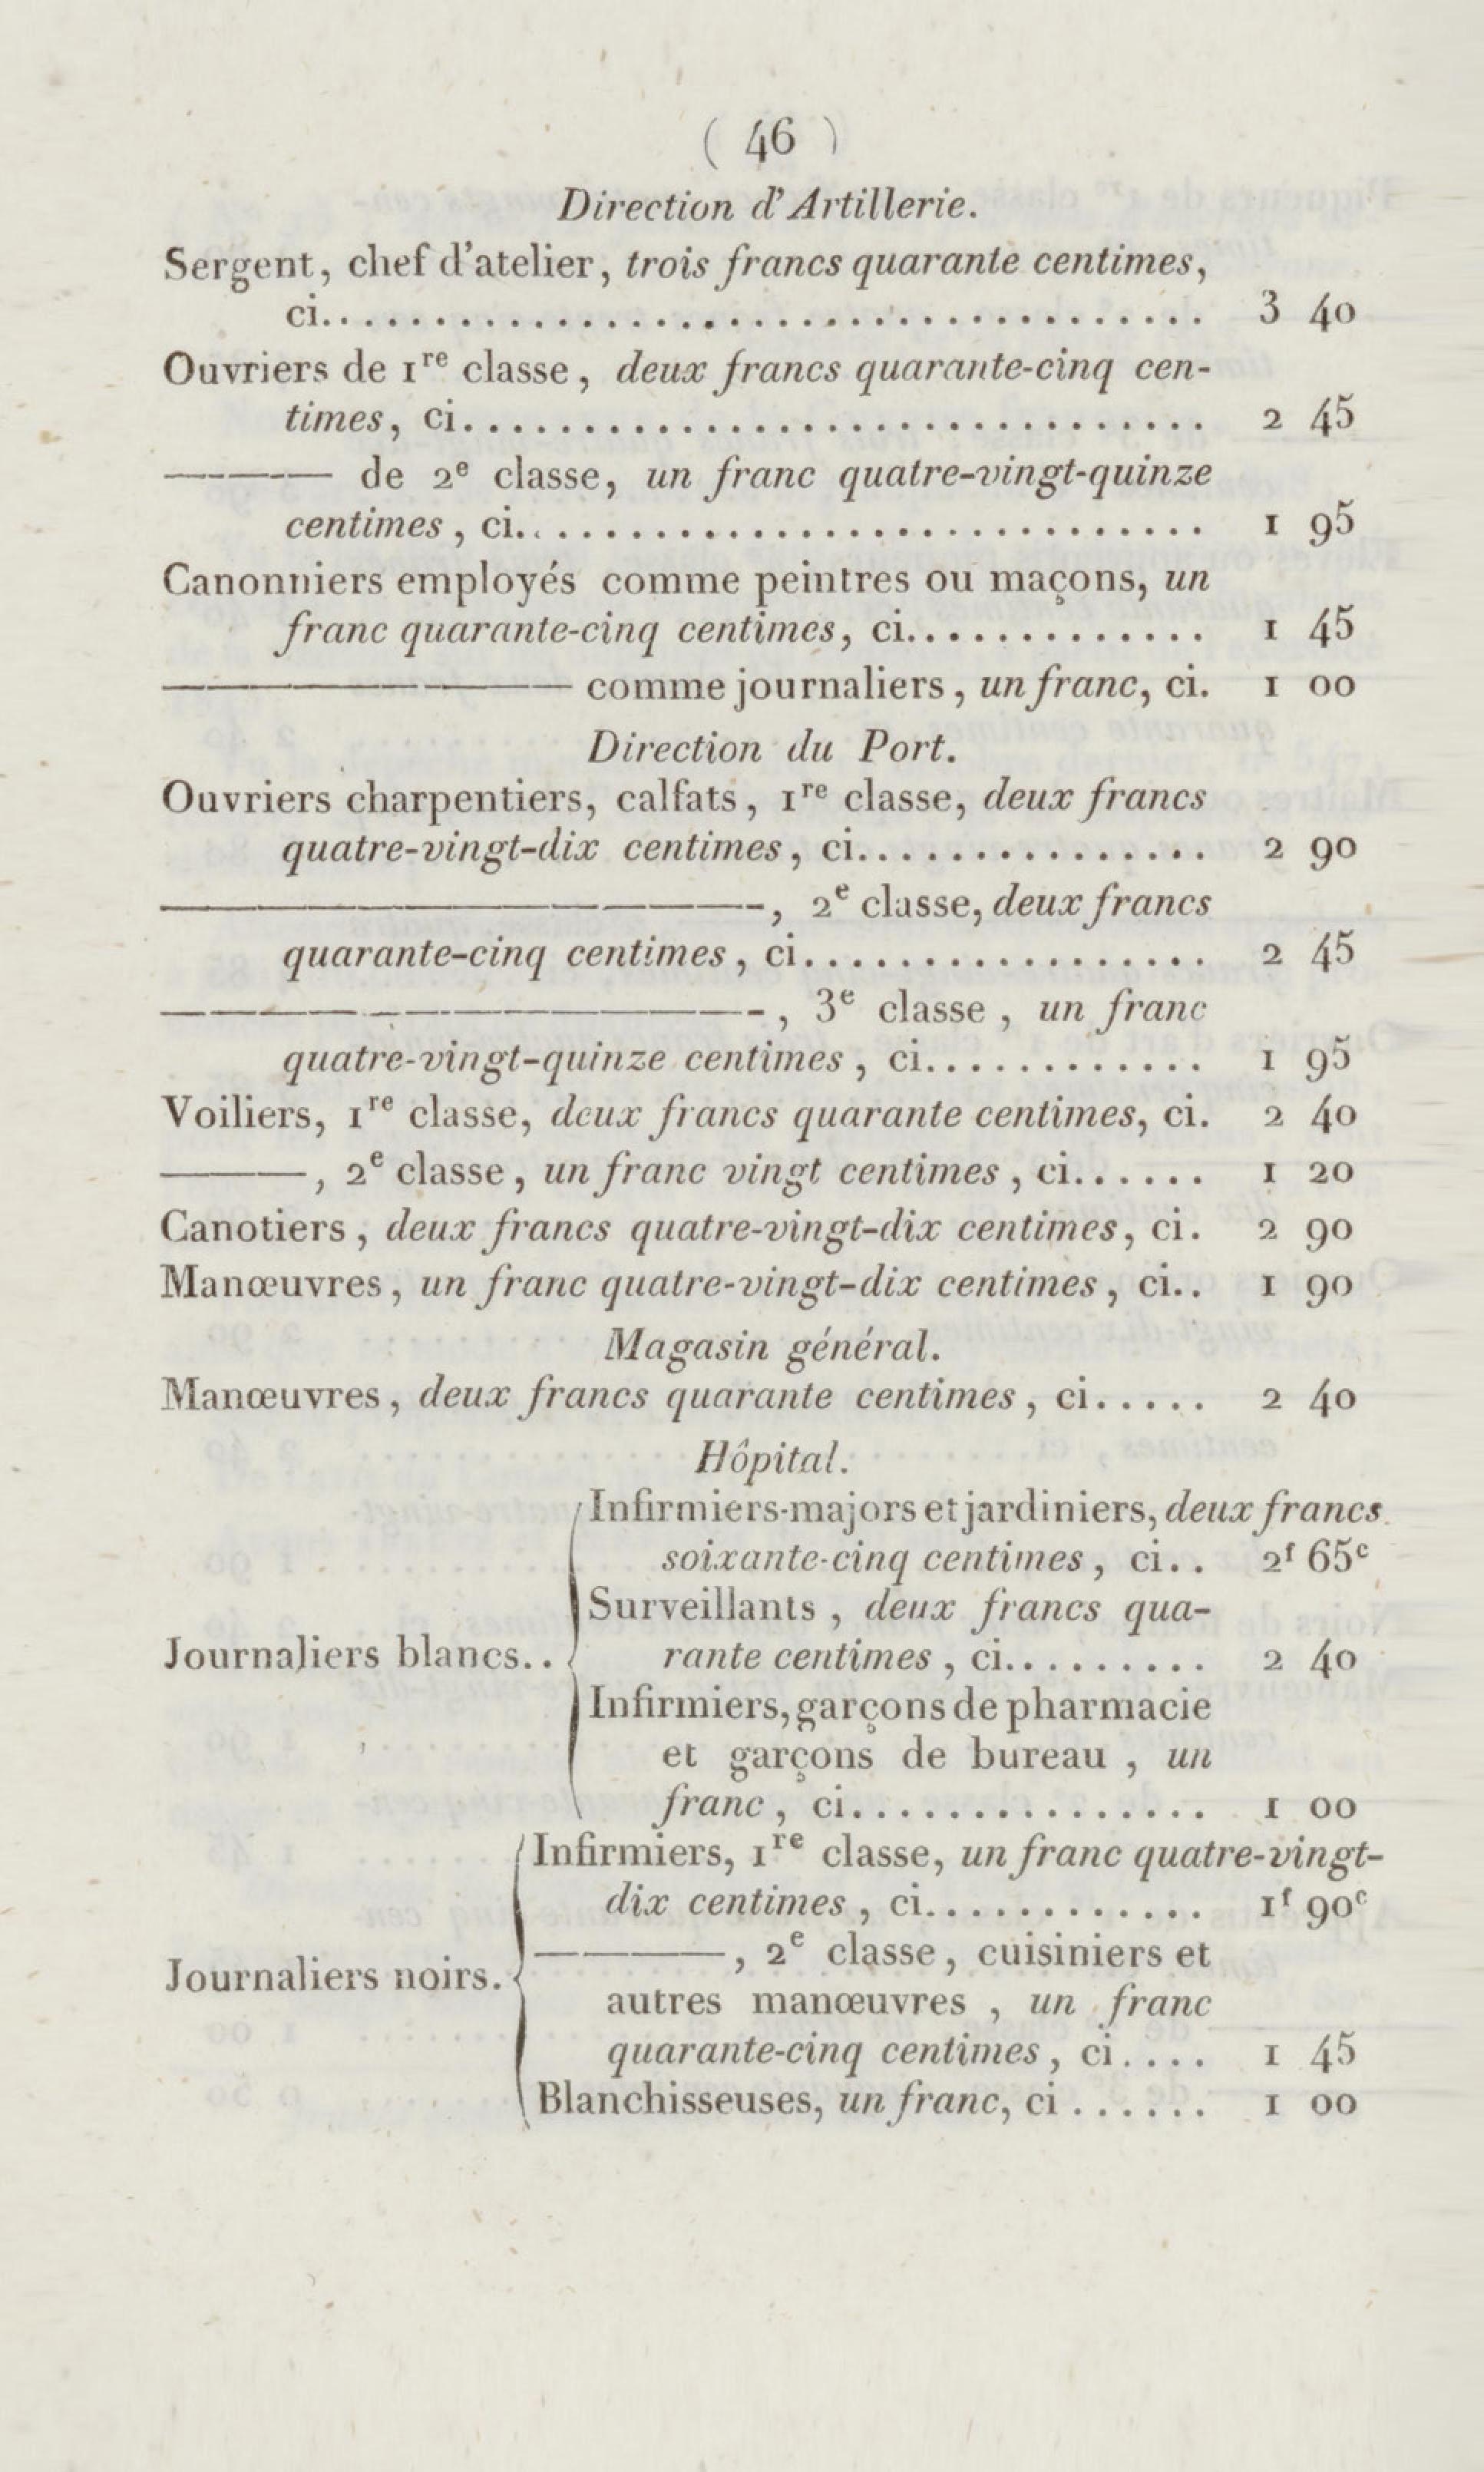 ( 46 )
Direction d'Artillerie.
Sergent, chef d'atelier, trois francs quarante centimes,
ci..................................... 3 40
Ouvriers de 1re classe, deux francs quarante-cinq cen-
times, ci............................... 2 45
———— de 2e classe, un franc quatre-vingt-quinze
centimes, ci............................ 1 95
Canonniers employés comme peintres ou maçons, un
franc quarante-cinq centimes, ci............. 1 45
————————— comme journaliers, un franc, ci. 1 00
Direction du Port.
Ouvriers charpentiers, calfats, 1re classe, deux francs
quatre-vingt-dix centimes, ci............... 2 90
—————————————, 2e classe, deux francs
quarante-cinq centimes, ci................. 2 45
—————————————, 3e classe, un franc
quatre-vingt-quinze centimes, ci............ 1 95
Voiliers, 1re classe, deux francs quarante centimes, ci. 2 40
———, 2e classe, un franc vingt centimes, ci...... 1 20
Canotiers, deux francs quatre-vingt-dix centimes, ci. 2 90
Manœuvres, un franc quatre-vingt-dix centimes, ci.. 1 90
Magasin général.
Manœuvres, deux francs quarante centimes, ci..... 2 40
Hôpital.
Infirmiers-majors et jardiniers, deux francs
soixante-cinq centimes, ci.. 2f 65c
Surveillants, deux francs qua-
Journaliers blancs.. rante centimes, ci......... 2 40
Infirmiers, garçons de pharmacie
et garçons de bureau, un
franc, ci............... 1 00
Infirmiers, 1re classe, un franc quatre-vingt-
dix centimes, ci............ 1f 90c
————, 2e classe, cuisiniers et
Journaliers noirs.
autres manœuvres, un franc
quarante-cinq centimes, ci.... 1 45
Blanchisseuses, un franc, ci...... 1 00